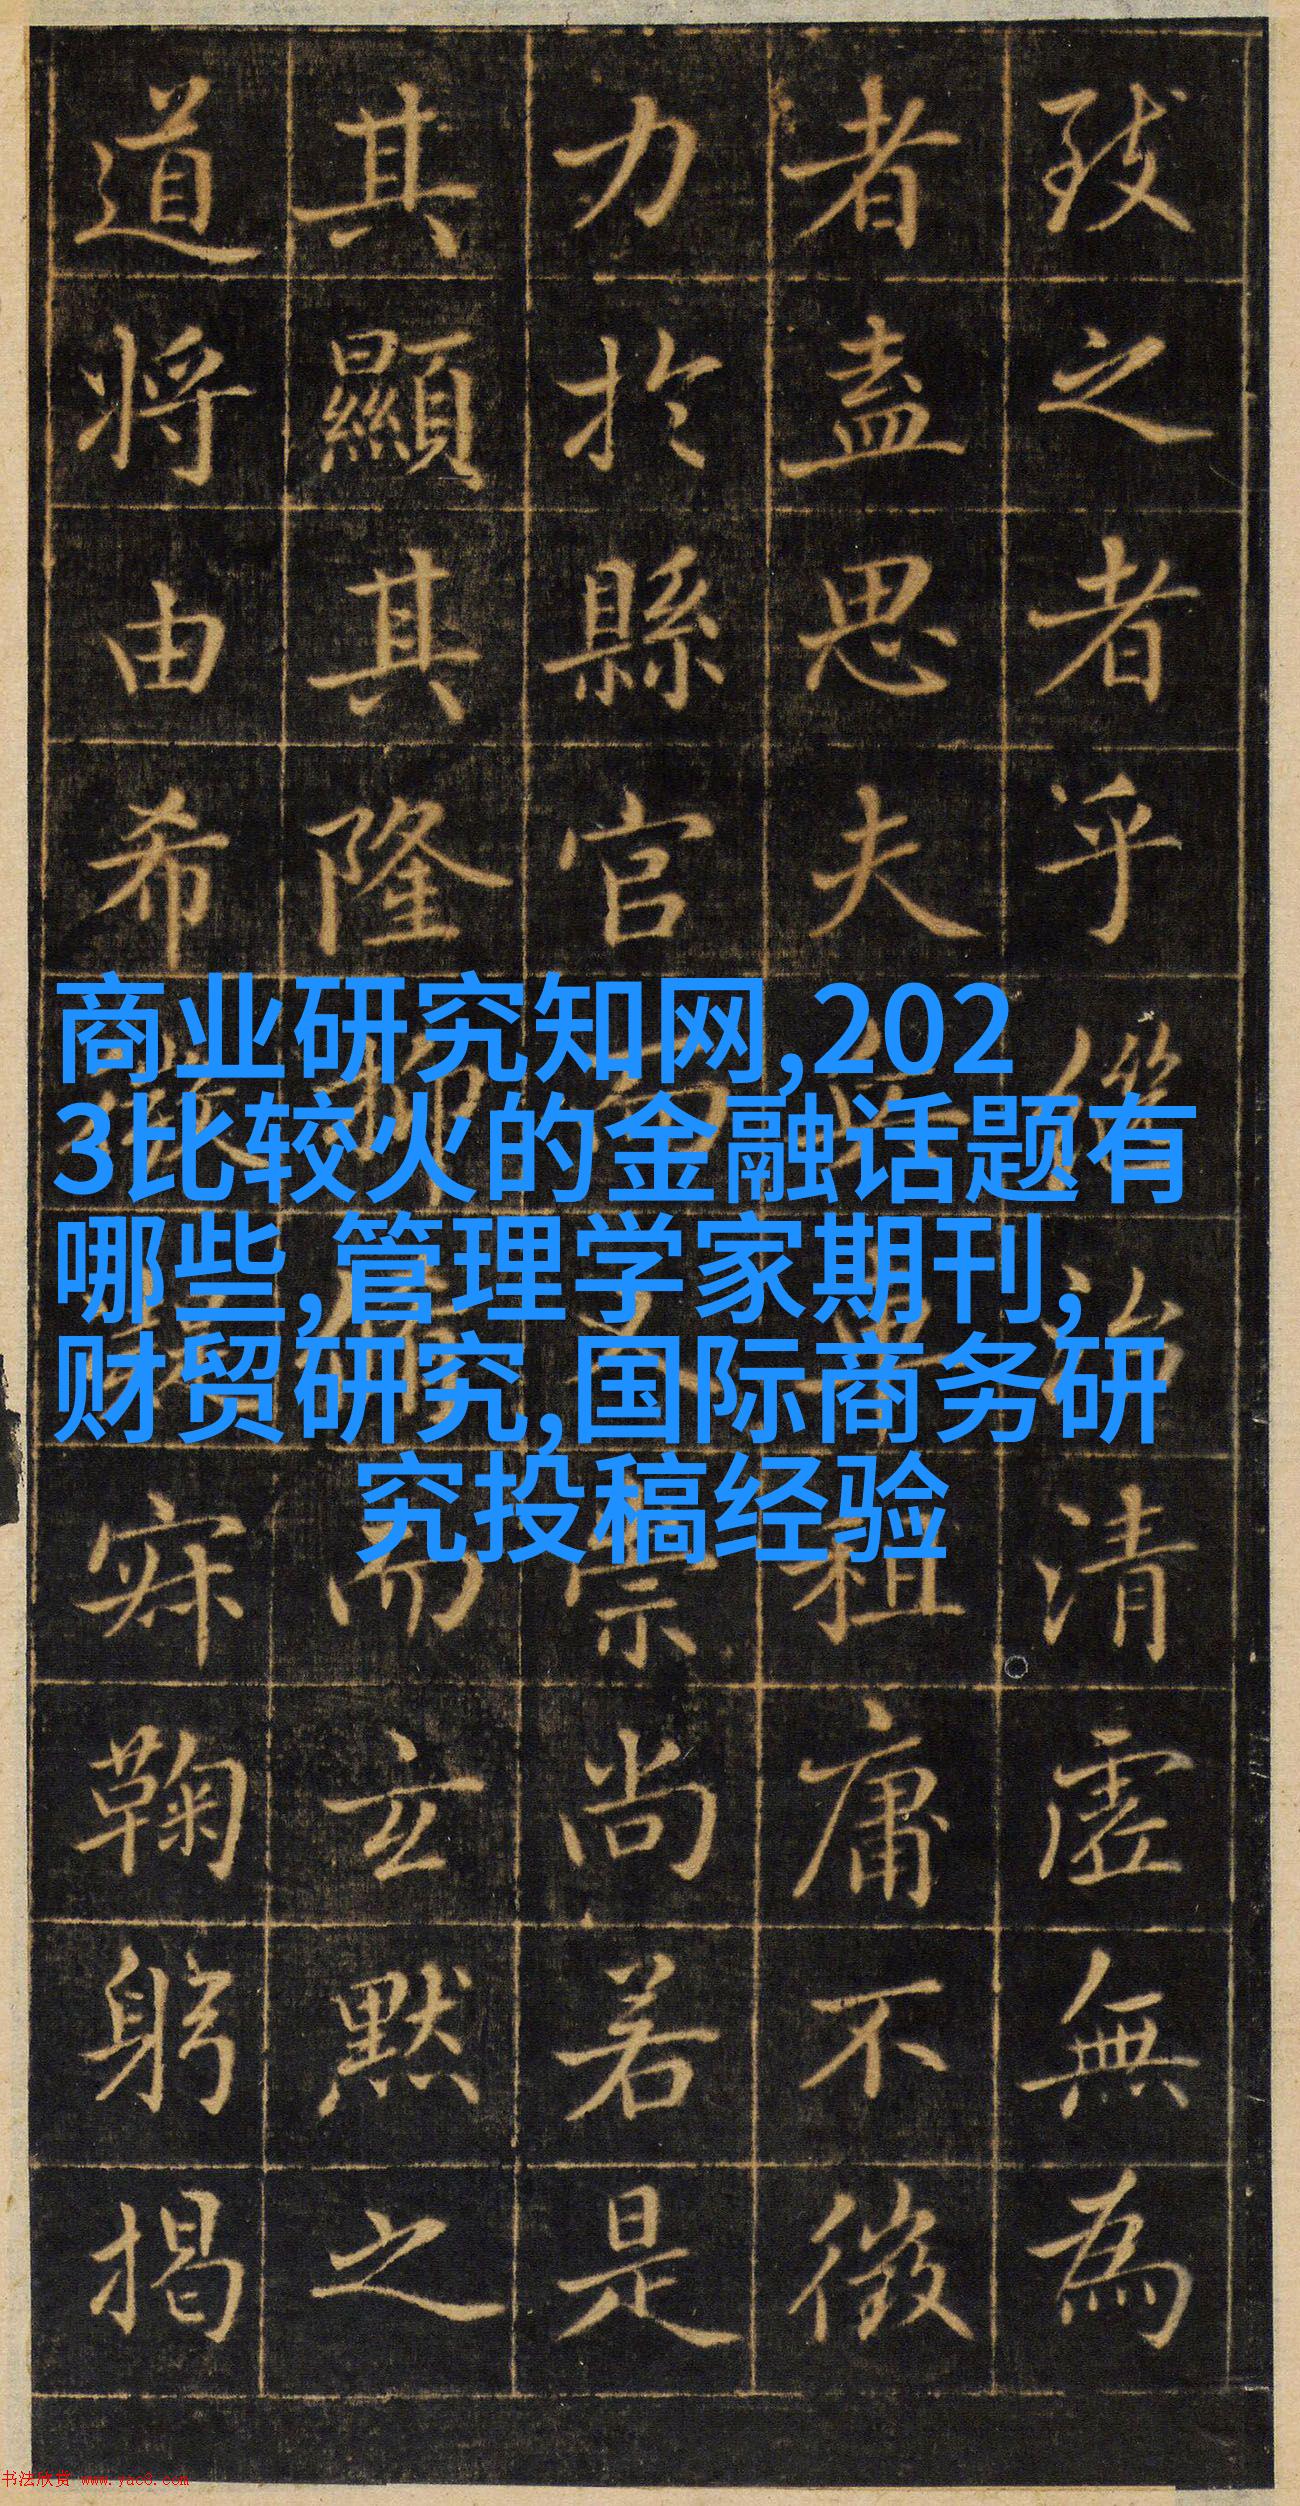 致之者乎治清虛無為
者盡思夫租庸不徵
力於縣官而崇尚若是
其顯其隆而玄默之
道将由希寐鞠躬揭
商业研究知网,202
3比较火的金融话题有
哪些,管理学家期刊,
财贸研究,国际商务研
究投稿经验
书法欣赏 www.yac8.com